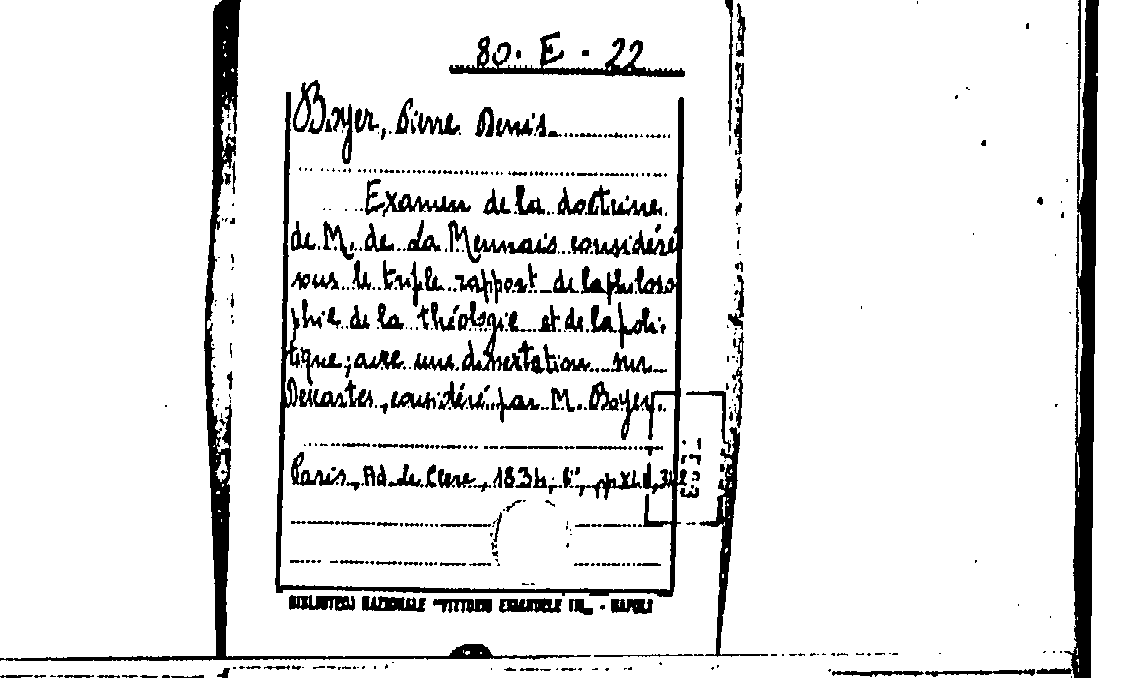 80. E - 22
Boyer, Pierre Denis.
Examen de la doctrine
de M. de La Mennais considéré
sous le triple rapport de la philoso
phie de la théologie et de la poli-
tique; avec une dissertation sur
Descartes, considéré par M. Boyer.
Paris, Ad. le Clere, 1834, 8°, pp
BIBLIOTECA NAZIONALE "VITTORIO EMANUELE III" - NAPOLI